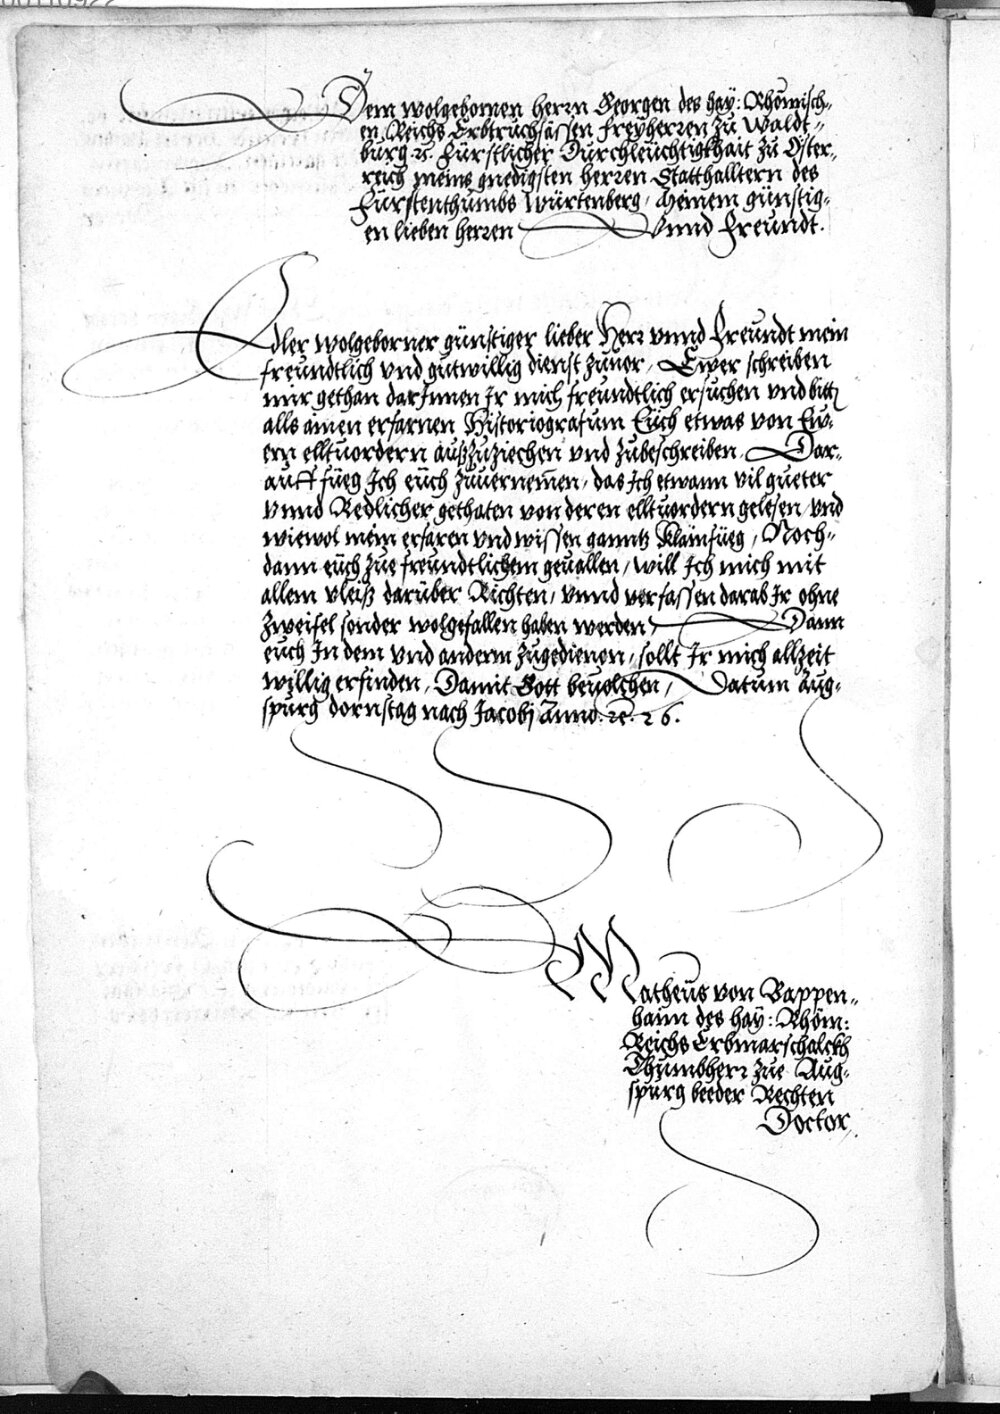 Dem wolgebornen herrn Georgen des hay: Rhömisch-
en Reichs Erbtruchsässen freyherren zu Waldt-
burg .rc. Fürstlicher Durchleüchtigkhait zu Öster-
reich meins gnedigsten herren Statthalltern des
Fürstenthumbs Würtenberg, Meinem günstig-
en lieben herren Vnnd Freundt.
Edler wolgeborner günstiger lieber Herr vnnd Freundt mein
freundtlich vnd gutwillig dienst zuuor, Ewer schreiben
mir gethan darInnen Ir mich freundtlich ersuchen vnd bitt
alls ainen erfarnen Historiografum Eüch etwas von Ew-
ern elltuordern außzuziechen vnd zubeschreiben, Dar-
auff füeg Ich eüch zuuernemen, das Ich etwann vil gueter
vnnd Redlicher gethaten von deren elltuordern gelesen, vnd
wiewol mein erfaren vnd wissen ganntz klainfüeg, Noch-
dann eüch zue freundtlichem geuallen, will Ich mich mit
allem vleiß darüber Richten, vnnd verfassen darab Ir ohne
Zweifel sonder wolgefallen haben werden, Dann
euch In dem vnd anderm zugedienen, sollt Ir mich allzeit
willig erfinden, Damit Gott beuolchen, Datum Aug-
spurg dornstag nach Jacobj Anno .rc. 26.
Matheüs von Bappen-
haim des hay: Rhöm:
Reichs Erbmarschalckh
Thumbherr zue Aug-
spurg beeder Rechten
Doctor,